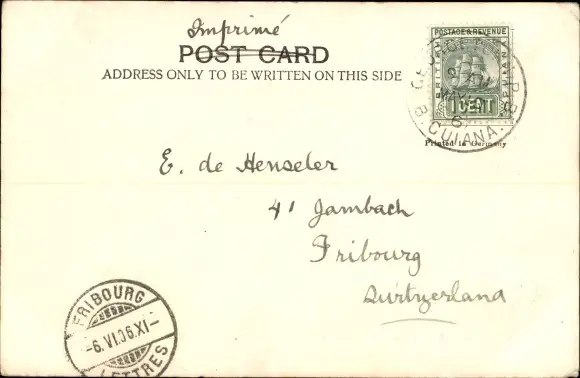 Imprimé
POST CARD
ADDRESS ONLY TO BE WRITTEN ON THIS SIDE
POSTAGE & REVENUE
BRITISH
1 CENT
B. GUIANA.
Printed in Germany
E. de Henseler
41 Jambach
Fribourg
Switzerland
FRIBOURG
-6.VI.06.XI-
LETTRES